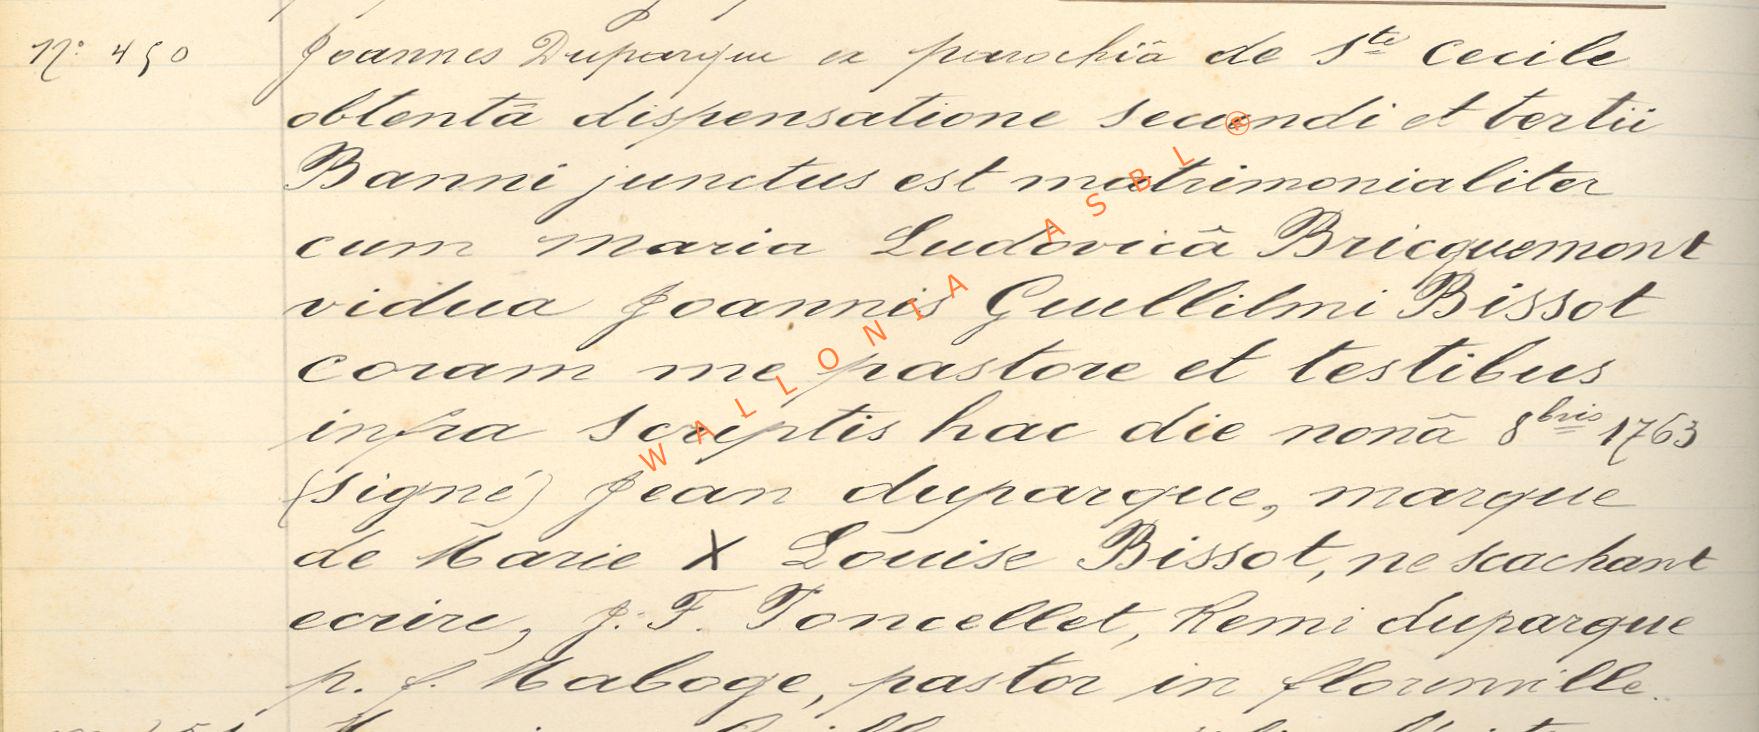 N° 450 Joannes Duparque ex parochiâ de Ste Cecile
obtentâ dispensatione secundi et tertii
Banni junctus est matrimonialiter
cum Maria Ludovicâ Bricquemont
vidua Joannis Guellilmi Bissot
coram me pastore et testibus
infra scriptis hac die nonâ 8bris 1763
(signé) Jean duparque, marque
de Marie X Louise Bissot, ne scachant
ecrire, J. F. Poncellet, Remi duparque
p. f. Maboge, pastor in florenville.
WALLONIA ASBL ®